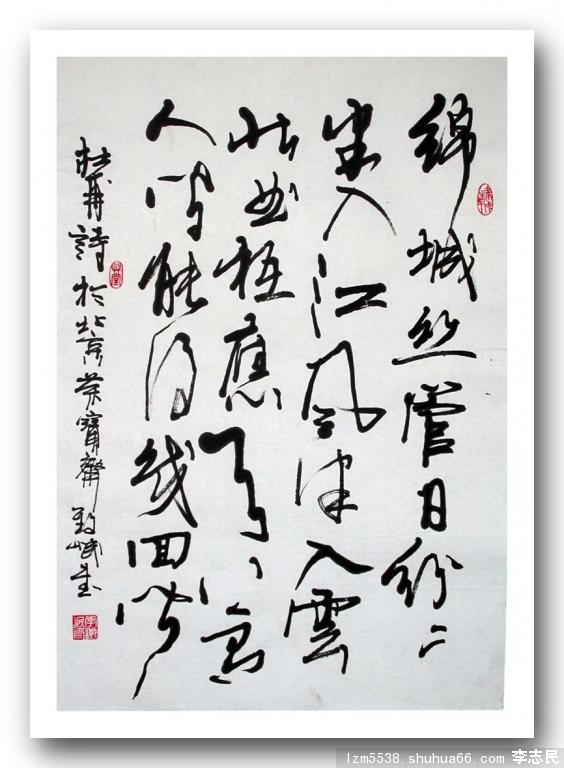 錦城丝管日纷々
半入江风半入雲
此曲祇應天上有
人间能得幾回闻
杜甫詩於北京荣寶齋
lzm5538.shuhua66.com 李志民